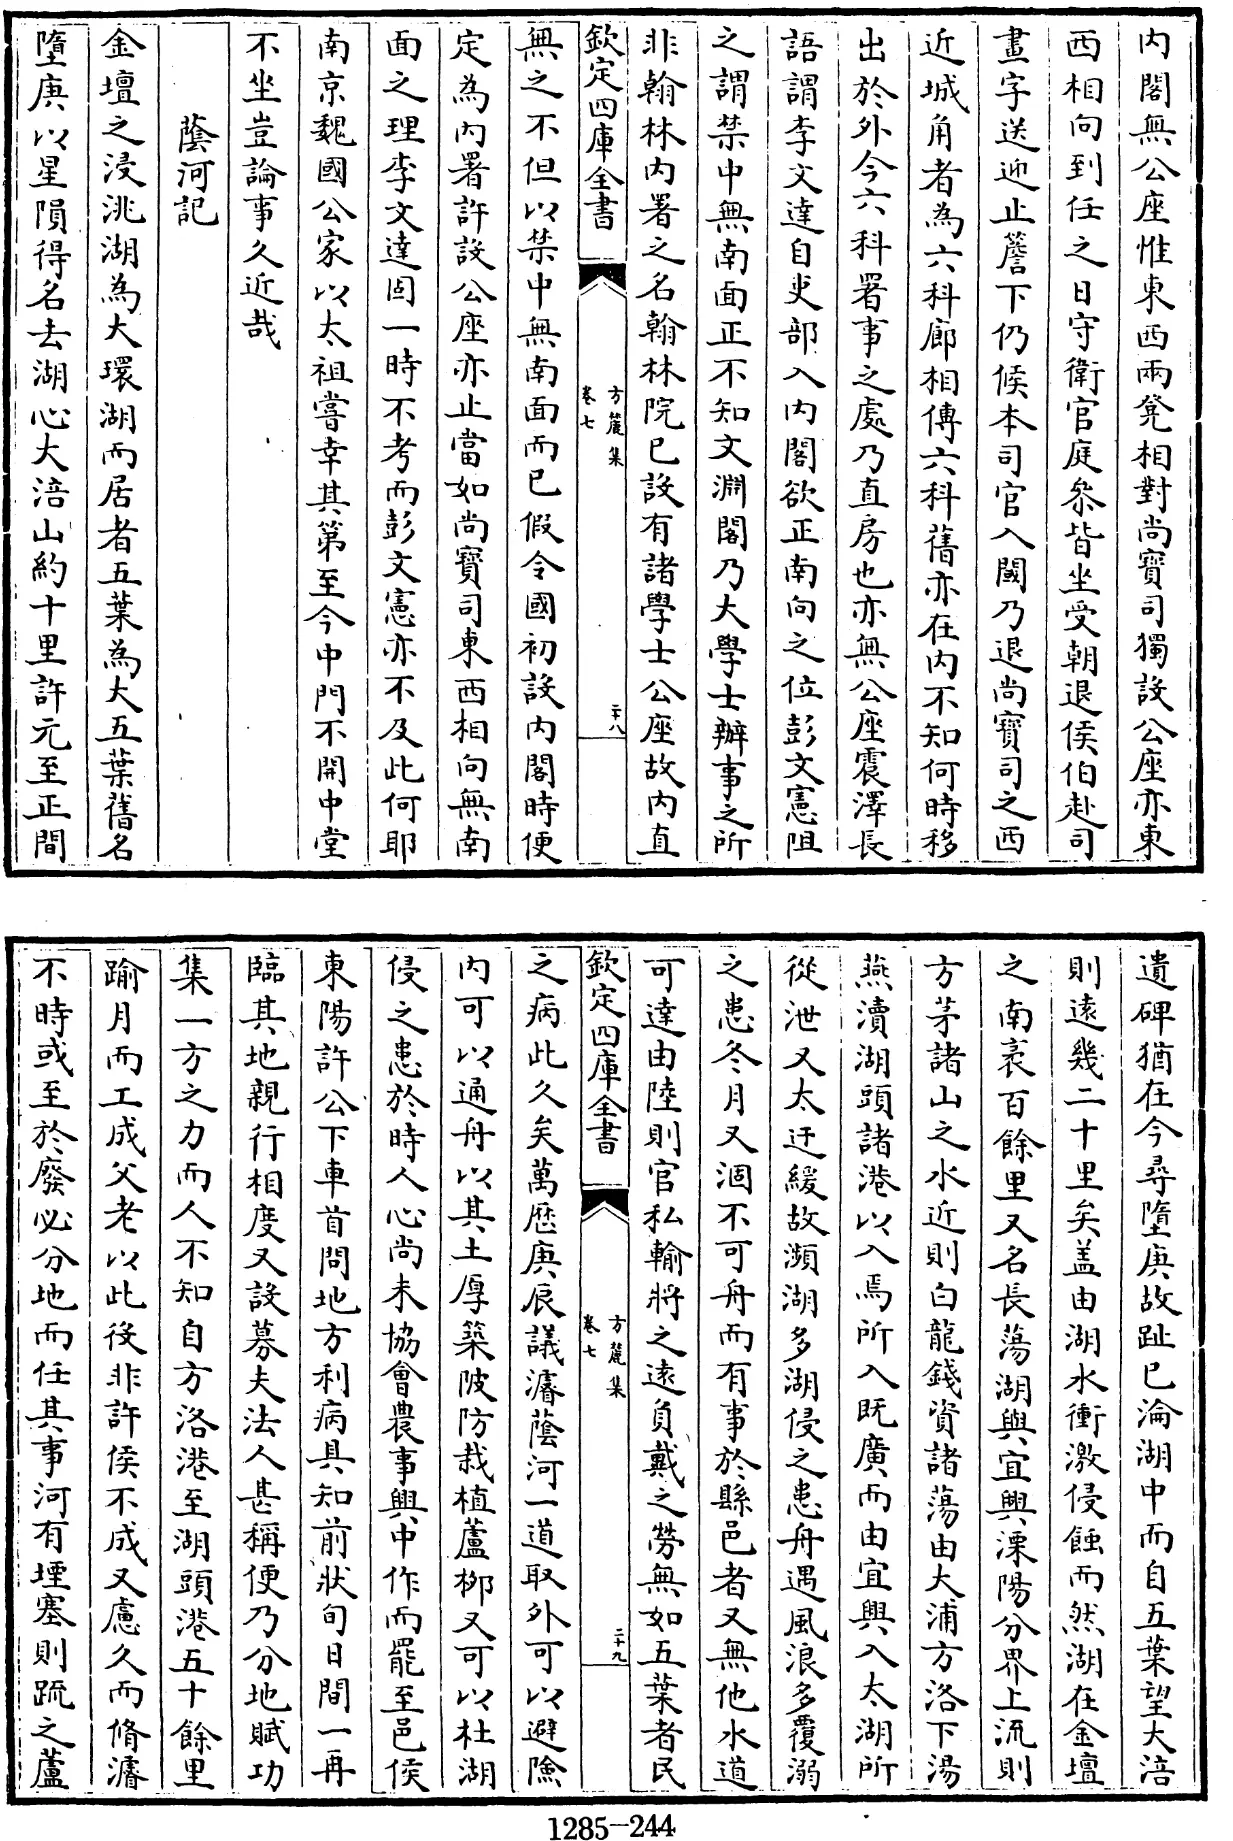 内閣無公座惟東西兩凳相對尚寶司獨設公座亦東
西相向到任之日守衛官庭叅皆坐受朝退侯伯赴司
畫字送迎止簷下仍候本司官入閣乃退尚寶司之西
近城角者為六科廊相傳六科舊亦在内不知何時移
出於外今六科署事之處乃直房也亦無公座震澤長
語謂李文達自吏部入内閣欲正南向之位彭文憲阻
之謂禁中無南面正不知文淵閣乃大學士辦事之所
非翰林内署之名翰林院已設有諸學士公座故内直
欽定四庫全書
方麓集
卷七
二十八
無之不但以禁中無南面而已假令國初設内閣時便
定為内署許設公座亦止當如尚寶司東西相向無南
面之理李文達固一時不考而彭文憲亦不及此何耶
南京魏國公家以太祖嘗幸其第至今中門不開中堂
不坐豈論事久近哉
蔭河記
金壇之浸洮湖為大環湖而居者五葉為大五葉舊名
墮庚以星隕得名去湖心大涪山約十里許元至正間
遺碑猶在今尋墮庚故趾已淪湖中而自五葉望大涪
則遠幾二十里矣盖由湖水衝激侵蝕而然湖在金壇
之南袤百餘里又名長蕩湖與宜興溧陽分界上流則
方茅諸山之水近則白龍錢資諸蕩由大浦方洛下湯
燕瀆湖頭諸港以入焉所入既廣而由宜興入太湖所
從泄又太迂緩故瀕湖多湖侵之患舟遇風浪多覆溺
之患冬月又涸不可舟而有事於縣邑者又無他水道
可達由陸則官私輸將之遠負戴之勞無如五葉者民
欽定四庫全書
方麓集
卷七
二十九
之病此久矣萬歷庚辰議濬蔭河一道取外可以避險
内可以通舟以其土厚築陂防栽植蘆栁又可以杜湖
侵之患於時人心尚未協會農事興中作而罷至邑侯
東陽許公下車首問地方利病具知前狀旬日間一再
臨其地親行相度又設募夫法人甚稱便乃分地賦功
集一方之力而人不知自方洛港至湖頭港五十餘里
踰月而工成父老以此役非許侯不成又慮久而脩濬
不時或至於廢必分地而任其事河有堙塞則疏之蘆
1285-244